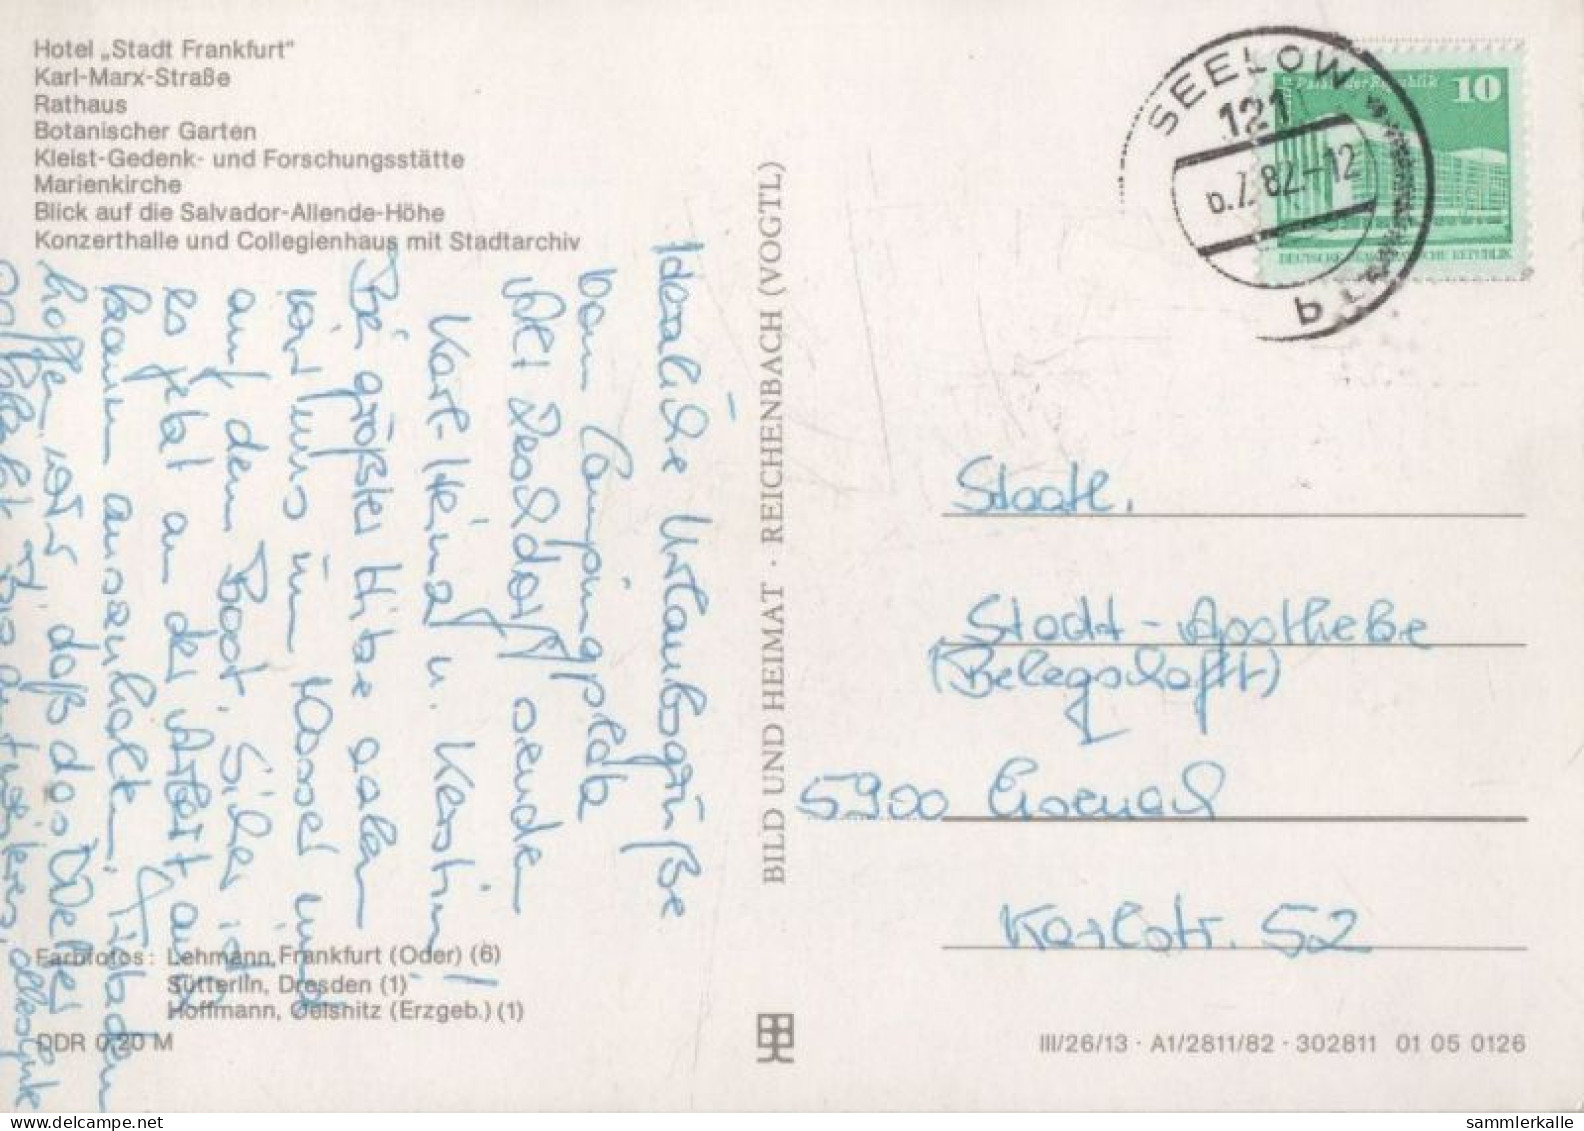 Hotel „Stadt Frankfurt"
Karl-Marx-Straße
Rathaus
Botanischer Garten
Kleist-Gedenk- und Forschungsstätte
Marienkirche
Blick auf die Salvador-Allende-Höhe
Konzerthalle und Collegienhaus mit Stadtarchiv
Idealische Urlaubsgrüße
vom Campingplatz
senden
Karl-Heinz u. Kerstin!
Bei größter Hitze aalen
wir uns im Wasser und
auf dem Boot. Sicher ist
es jetzt an der Arbeit auch
kaum auszuhalten. Trotzdem
hoffen wir, daß das Wetter
Farbfotos: Lehmann, Frankfurt (Oder) (6)
Sütterlin, Dresden (1)
Hoffmann, Oelsnitz (Erzgeb.) (1)
DDR 0,20 M
BILD UND HEIMAT · REICHENBACH (VOGTL)
SEELOW
121
6.7.82-12
b
Palast der Republik 10
DEUTSCHE DEMOKRATISCHE REPUBLIK
Staatl.
Stadt-Apotheke
(Belegschaft)
5900 Eisenach
Karlstr. 52
III/26/13 · A1/2811/82 · 302811 01 05 0126
sammlerkalle